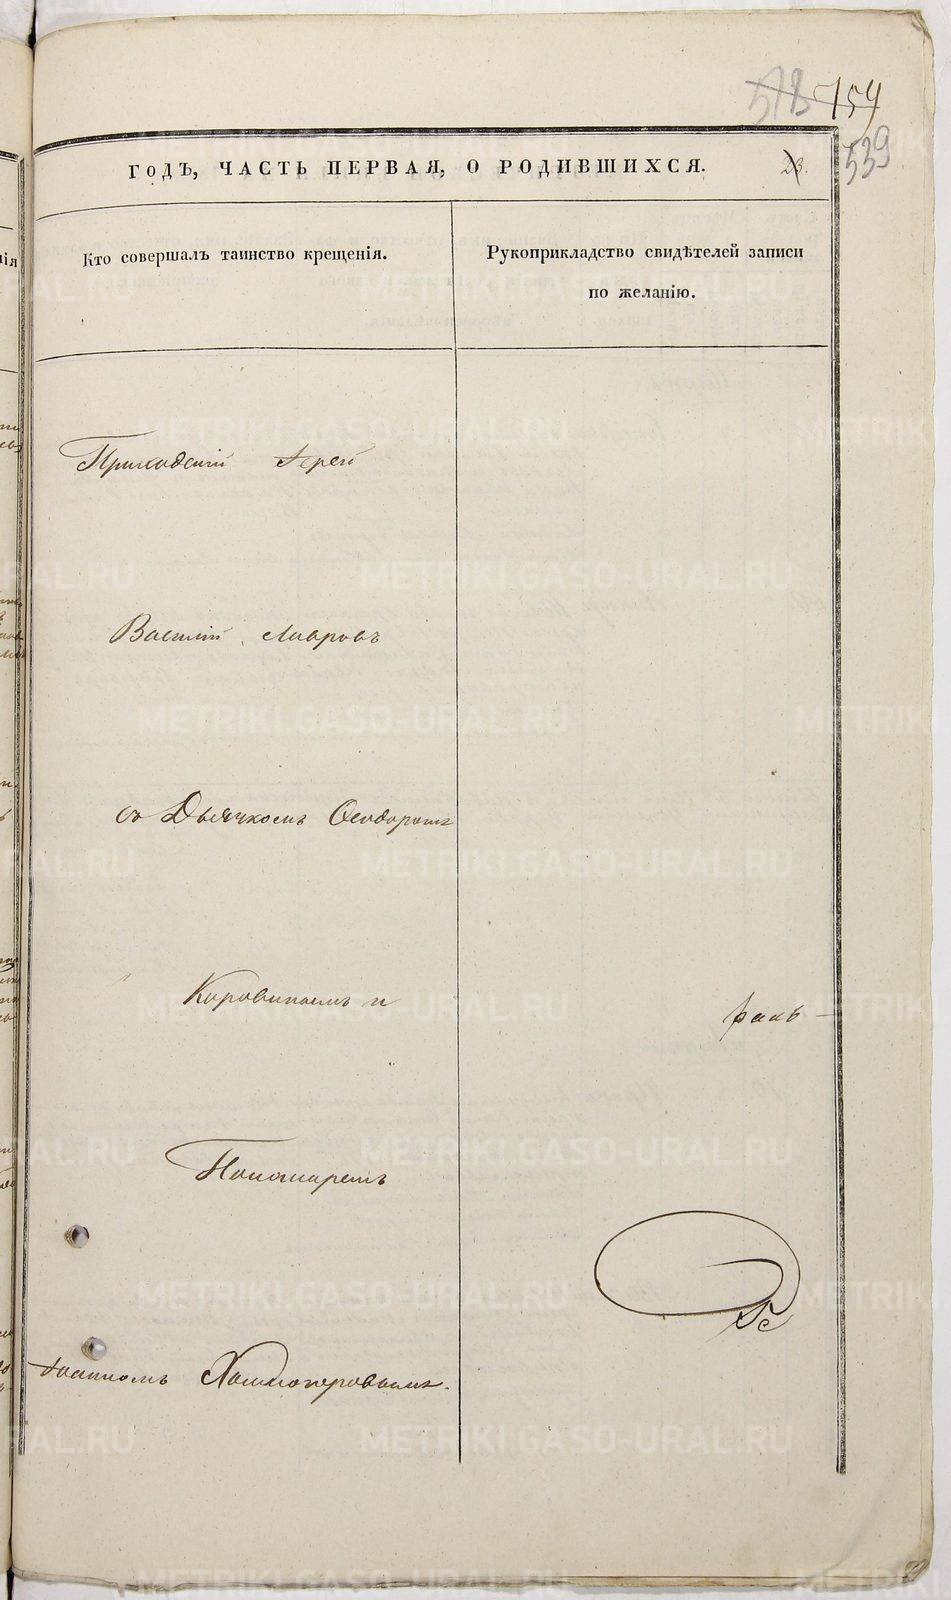 578 159
ГОДЪ, ЧАСТЬ ПЕРВАЯ, О РОДИВШИХСЯ. 23.
539
Кто совершалъ таинство крещенія.
Рукоприкладство свидѣтелей записи
по желанію.
Приходскій Іерей
Василій Лавровъ
съ Дьячкомъ Ѳеодоромъ
Коровинымъ и
Пономаремъ
Іоанномъ Хламоперовымъ.
METRIKI.GASO-URAL.RU